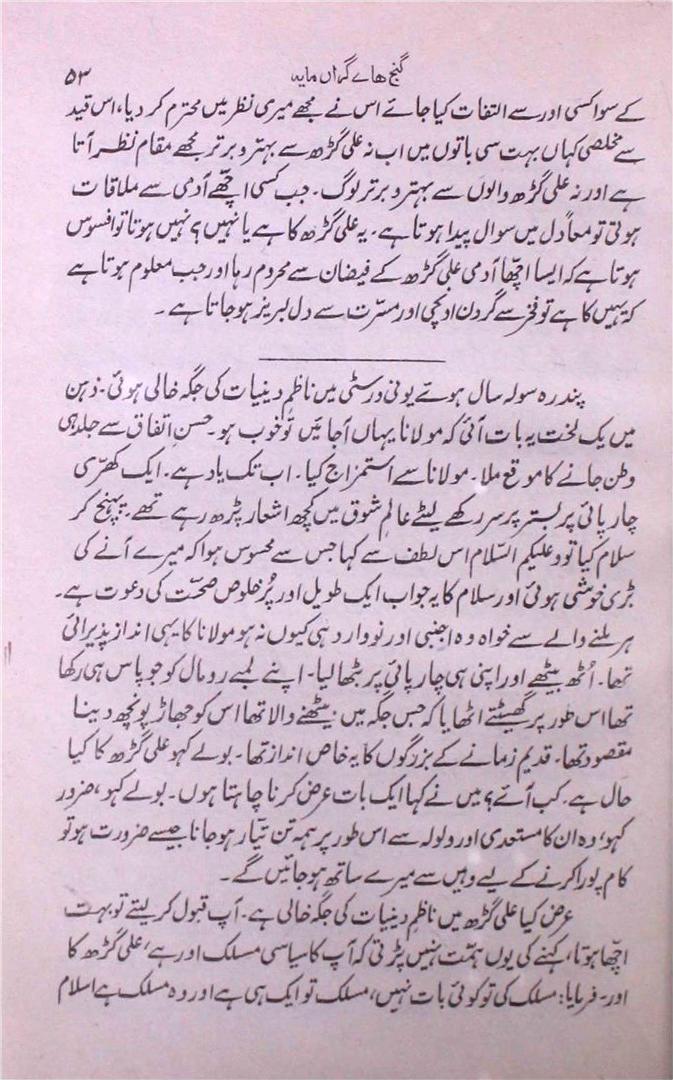 گنج ھاے گراں مایہ ۵۳
کے سوا کسی اور سے التفات کیا جائے اس نے مجھے میری نظر میں محترم کر دیا، اس قید
سے مخلصی کہاں بہت سی باتوں میں اب نہ علی گڑھ سے بہتر و برتر مجھے مقام نظر آتا
ہے اور نہ علی گڑھ والوں سے بہتر و برتر لوگ۔ جب کسی اچھے آدمی سے ملاقات
ہوتی تو معاً دل میں سوال پیدا ہوتا ہے۔ یہ علی گڑھ کا ہے یا نہیں؟ نہیں ہوتا تو افسوس
ہوتا ہے کہ ایسا اچھا آدمی علی گڑھ کے فیضان سے محروم رہا اور جب معلوم ہوتا ہے
کہ یہیں کا ہے تو فخر سے گردن اونچی اور مسرت سے دل لبریز ہو جاتا ہے۔
پندرہ سولہ سال ہوئے یونی ورسٹی میں ناظم دینیات کی جگہ خالی ہوئی۔ ذہن
میں یک لخت یہ بات آئی کہ مولانا یہاں آجائیں تو خوب ہو۔ حسنِ اتفاق سے جلد ہی
وطن جانے کا موقع ملا۔ مولانا سے استمزاج کیا۔ اب تک یاد ہے۔ ایک کھری
چارپائی پر بستر پر سر رکھے لیٹے عالمِ شوق میں کچھ اشعار پڑھ رہے تھے۔ پہنچ کر
سلام کیا تو وعلیکم السلام اس لطف سے کہا جس سے محسوس ہوا کہ میرے آنے کی
بڑی خوشی ہوئی اور سلام کا یہ جواب ایک طویل اور پُر خلوص صحبت کی دعوت ہے۔
ہر ملنے والے سے خواہ وہ اجنبی اور نووارد ہی کیوں نہ ہو مولانا کا یہی انداز پذیرائی
تھا۔ اُٹھ بیٹھے اور اپنی ہی چارپائی پر بٹھا لیا۔ اپنے لمبے رومال کو جو پاس ہی رکھا
تھا اس طور پر گھسیٹتے اٹھایا کہ جس جگہ میں بیٹھنے والا تھا اس کو جھاڑ پونچھ دینا
مقصود تھا۔ قدیم زمانے کے بزرگوں کا یہ خاص انداز تھا۔ بولے کہو علی گڑھ کا کیا
حال ہے۔ کب آئے؟ میں نے کہا ایک بات عرض کرنا چاہتا ہوں۔ بولے کہو، ضرور
کہو، وہ ان کا مستعدی اور ولولہ سے اس طور پر ہمہ تن تیار ہو جانا جیسے ضرورت ہو تو
کام پورا کرنے کے لیے وہیں سے میرے ساتھ ہو جائیں گے۔
عرض کیا علی گڑھ میں ناظم دینیات کی جگہ خالی ہے۔ آپ قبول کر لیتے تو بہت
اچھا ہوتا، کہنے کی یوں ہمت نہیں پڑتی کہ آپ کا سیاسی مسلک اور ہے، علی گڑھ کا
اور۔ فرمایا: مسلک کی تو کوئی بات نہیں، مسلک تو ایک ہی ہے اور وہ مسلک ہے اسلام